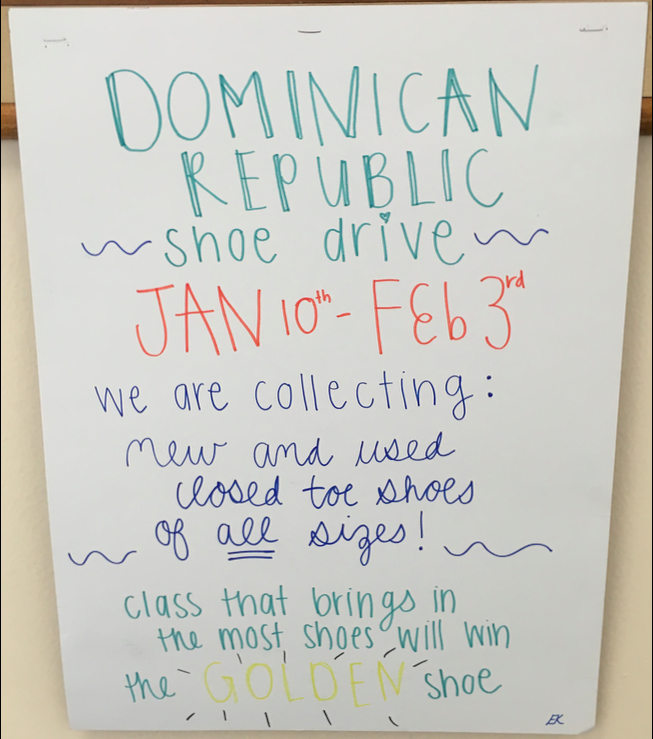 DOMINICAN
REPUBLIC
shoe drive
JAN 10th - FEb 3rd
we are collecting:
new and used
closed toe shoes
of all sizes!
class that brings in
the most shoes will win
the GOLDEN shoe
EK